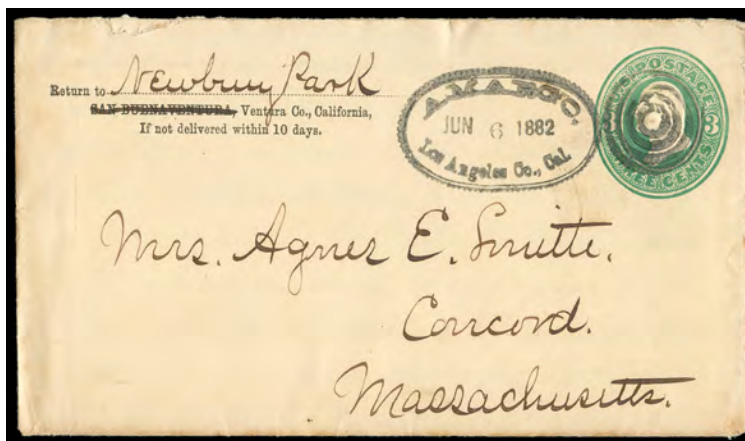 Return to Newbury Park
SAN BUENAVENTURA, Ventura Co., California,
If not delivered within 10 days.
AMARGO.
JUN 6 1882
Los Angeles Co., Cal.
U.S. POSTAGE
3 3
THREE CENTS
Mrs. Agnes E.
Concord.
Massachusetts.